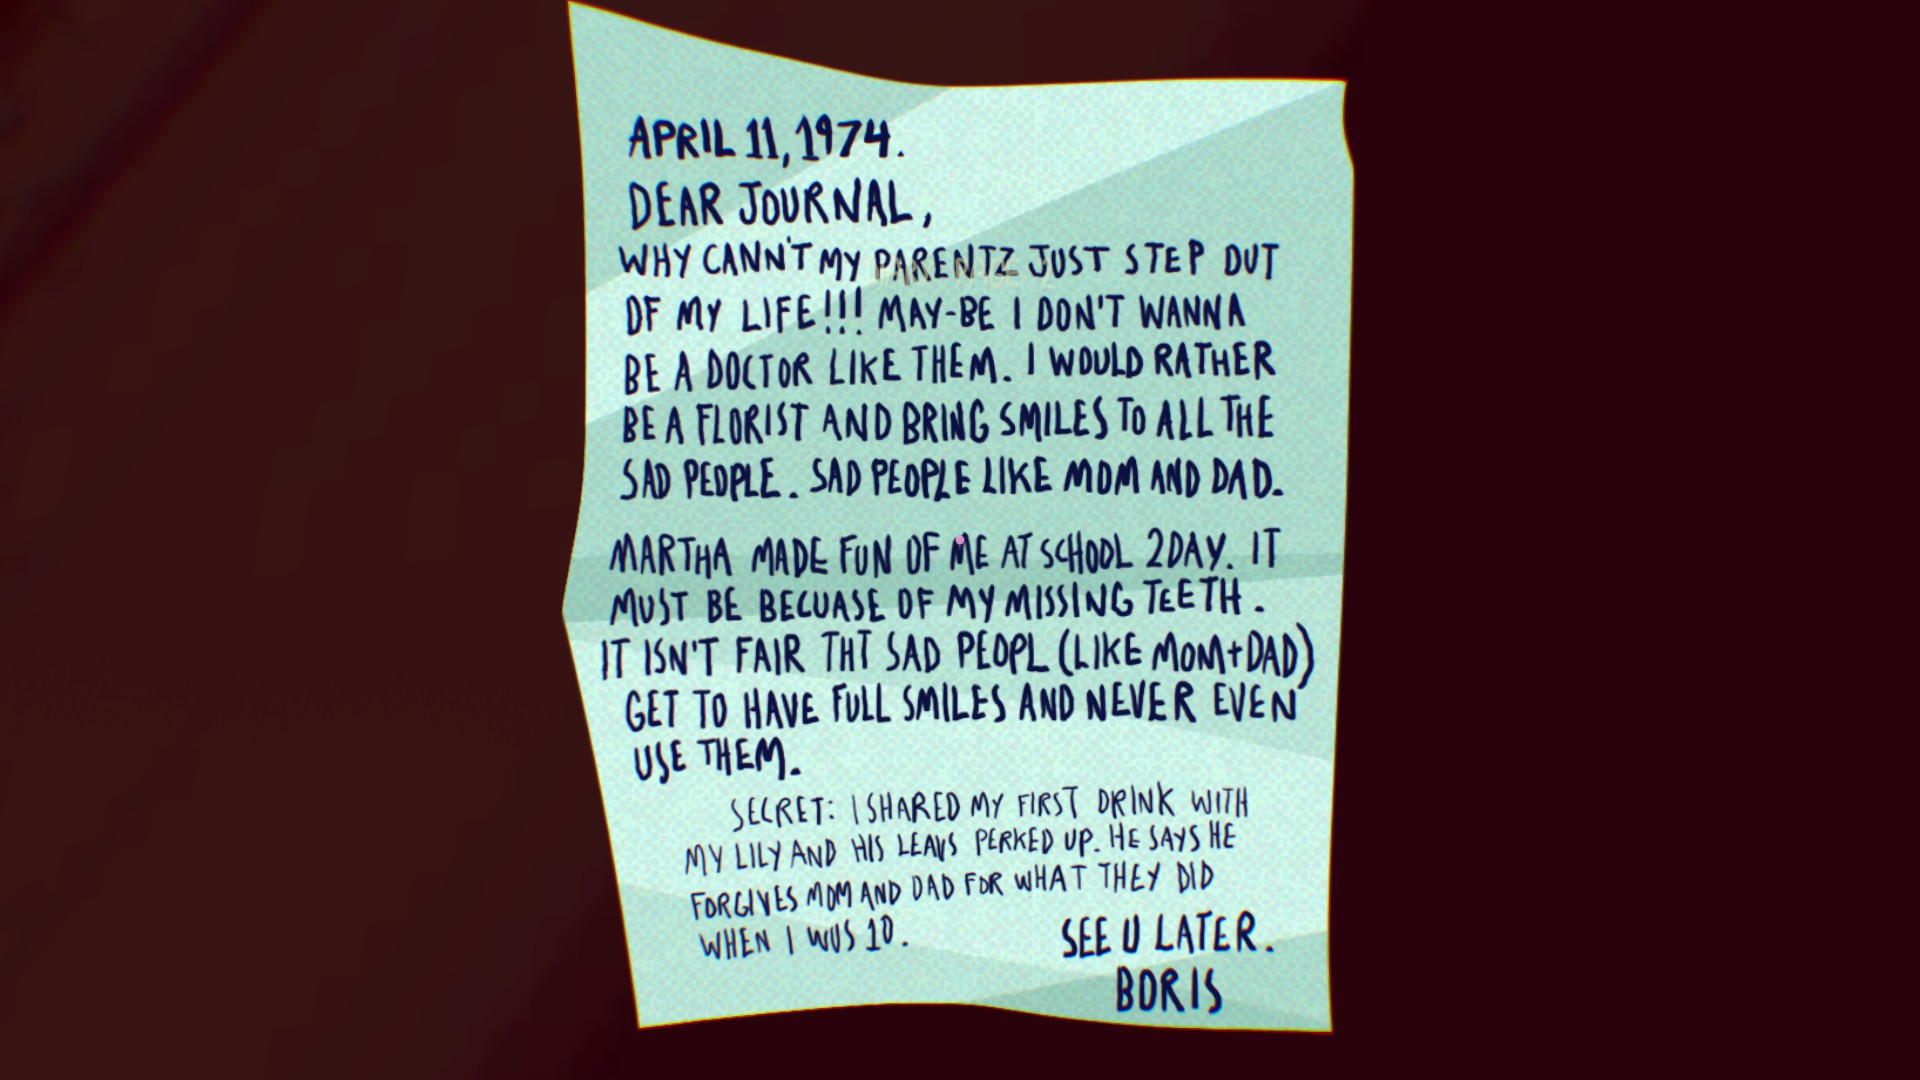 APRIL 11, 1974.
DEAR JOURNAL,
WHY CANN'T MY PARENTZ JUST STEP OUT
OF MY LIFE!!! MAY-BE I DON'T WANNA
BE A DOCTOR LIKE THEM. I WOULD RATHER
BE A FLORIST AND BRING SMILES TO ALL THE
SAD PEOPLE. SAD PEOPLE LIKE MOM AND DAD.
MARTHA MADE FUN OF ME AT SCHOOL 2DAY. IT
MUST BE BECUASE OF MY MISSING TEETH.
IT ISN'T FAIR THT SAD PEOPL (LIKE MOM+DAD)
GET TO HAVE FULL SMILES AND NEVER EVEN
USE THEM.
SECRET: I SHARED MY FIRST DRINK WITH
MY LILY AND HIS LEAVS PERKED UP. HE SAYS HE
FORGIVES MOM AND DAD FOR WHAT THEY DID
WHEN I WUS 10.
SEE U LATER.
BORIS